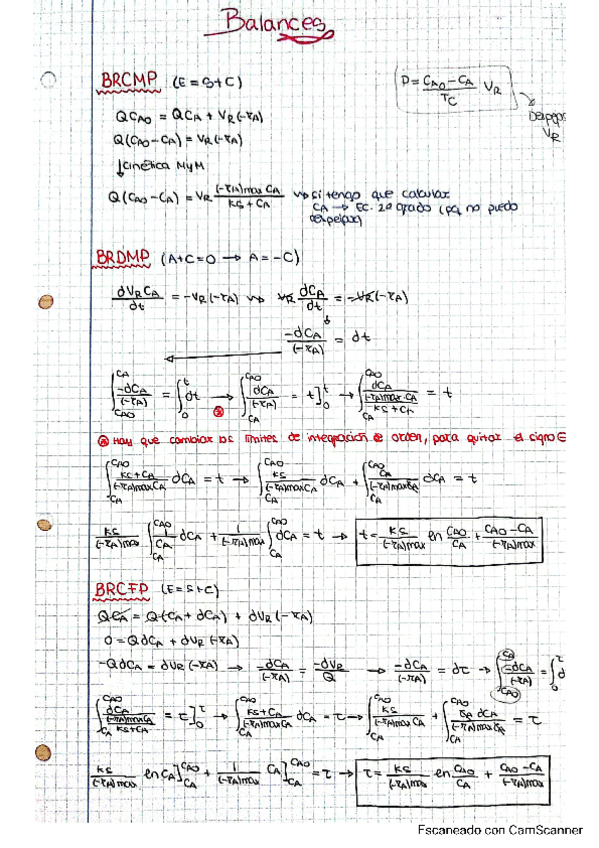 Balances
BRCMP (E=S+C)
P = (C_A0 - C_A)/T_C V_R
V_R
Q C_A0 = Q C_A + V_R (-r_A)
Q(C_A0 - C_A) = V_R (-r_A)
↓ Cinética MyM
Q(C_A0 - C_A) = V_R (-r_A)max C_A / (K_S + C_A) → si tengo que calcular
C_A → EC. 2º grado (pq no puedo
despejar)
BRDMP (A+C=0 → A=-C)
dV_R C_A / dt = -V_R (-r_A) → V_R dC_A/dt = -V_R (-r_A)
↓
-dC_A/(-r_A) = dt
←
∫_{C_A0}^{C_A} -dC_A/(-r_A) = ∫_0^t dt → ∫_{C_A}^{C_A0} dC_A/(-r_A) = t]_0^t → ∫_{C_A}^{C_A0} dC_A / ((-r_A)max·C_A / (K_S+C_A)) = t
Hay que cambiar los límites de integración de orden, para quitar el signo ⊖
∫_{C_A}^{C_A0} (K_S+C_A)/((-r_A)max C_A) dC_A = t → ∫_{C_A}^{C_A0} K_S/((-r_A)max C_A) dC_A + ∫_{C_A}^{C_A0} C_A/((-r_A)max C_A) dC_A = t
K_S/(-r_A)max ∫_{C_A}^{C_A0} 1/C_A dC_A + 1/(-r_A)max ∫_{C_A}^{C_A0} dC_A = t → t = K_S/(-r_A)max ln C_A0/C_A + (C_A0 - C_A)/(-r_A)max
BRCFP (E=S+C)
Q C_A = Q(C_A + dC_A) + dV_R (-r_A)
0 = Q dC_A + dV_R (-r_A)
-Q dC_A = dV_R (-r_A) → -dC_A/(-r_A) = -dV_R/Q → -dC_A/(-r_A) = dτ → ∫_{C_A0}^{C_A} -dC_A/(-r_A) = ∫_0^τ d
∫_{C_A}^{C_A0} dC_A / ((-r_A)max C_A / (K_S+C_A)) = τ]_0^τ → ∫_{C_A}^{C_A0} (K_S+C_A)/((-r_A)max C_A) dC_A = τ → ∫_{C_A}^{C_A0} K_S/((-r_A)max C_A) + ∫_{C_A}^{C_A0} C_A dC_A/((-r_A)max C_A) = τ
K_S/(-r_A)max ln C_A]_{C_A}^{C_A0} + 1/(-r_A)max C_A]_{C_A}^{C_A0} = τ → τ = K_S/(-r_A)max ln C_A0/C_A + (C_A0 - C_A)/(-r_A)max
Escaneado con CamScanner